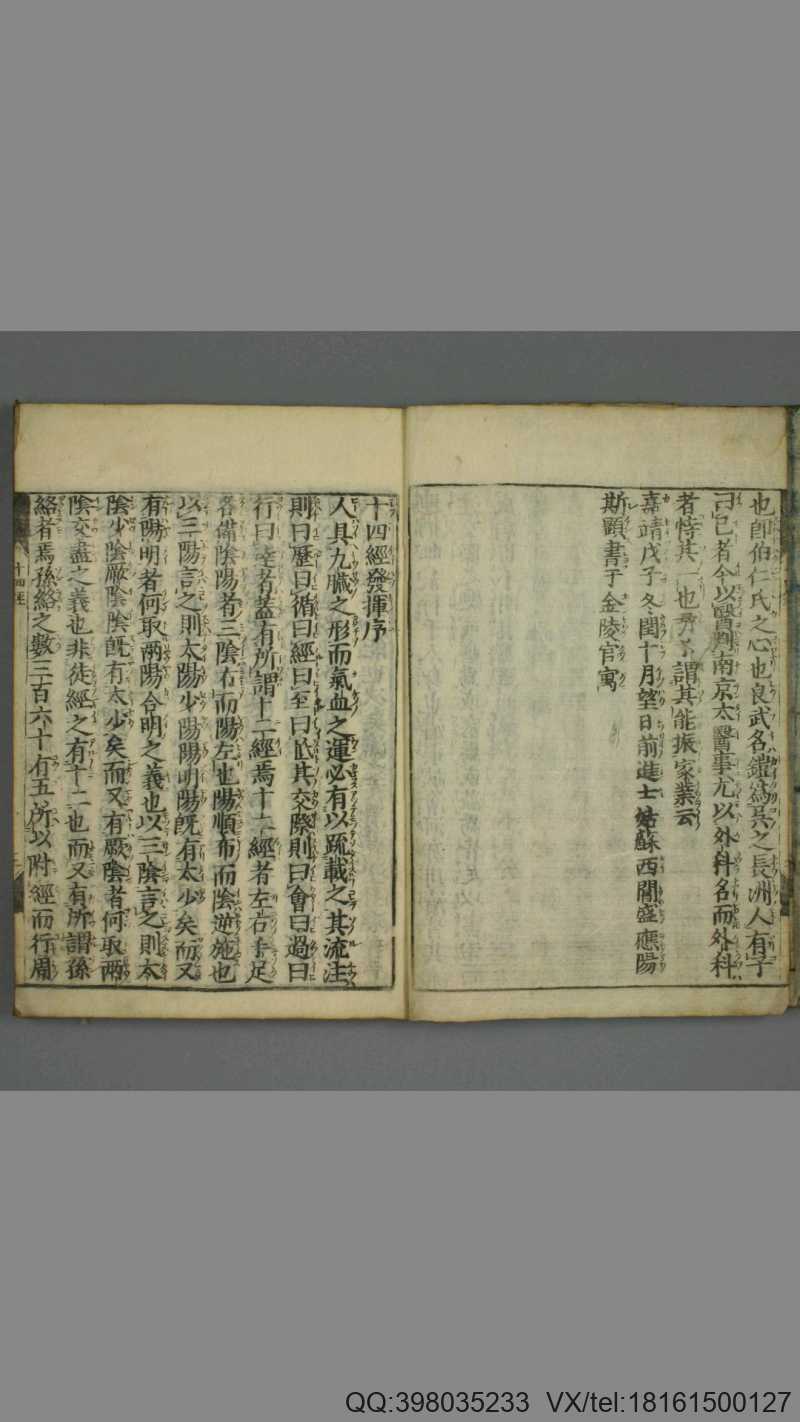 也即伯仁氏之心也良武名鎧爲吳之長洲人有子
曰己者今以醫判南京太醫事尤以外科名而外科
者特其一也 謂其能振家業云
嘉靖戊子冬閏十月望日前進士姑蘇西閶盛應陽
斯顕書于金陵官寓
十四經發揮序
人具九臟之形而氣血之運必有以疏載之其流注
則曰歷曰循曰經曰至曰抵其交際則曰會曰過曰
行曰達者蓋有所謂十二經焉十二經者左右手足
各備陰陽者三陰右而陽左也陽順布而陰逆施也
以三陽言之則太陽少陽陽明陽既有太少矣而又
有陽明者何取兩陽合明之義也以三陰言之則太
陰少陰厥陰陰既有太少矣而又有厥陰者何取兩
陰交盡之義也非徒經之有十二也而又有所謂孫
絡者焉孫絡之數三百六十有五所以附經而行周
十四經
QQ:398035233 VX/tel:18161500127